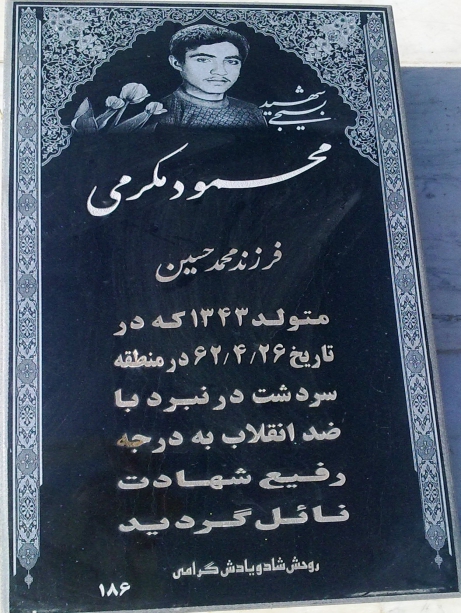 شهید
بسیجی
محمود مکرمی
فرزند محمد حسین
متولد ۱۳۴۳ که در
تاریخ ۶۲٫۴٫۲۶ در منطقه
سردشت در نبرد با
ضد انقلاب به درجه
رفیع شهادت
نائل گردید
روحش شاد و یادش گرامی
۱۸۶